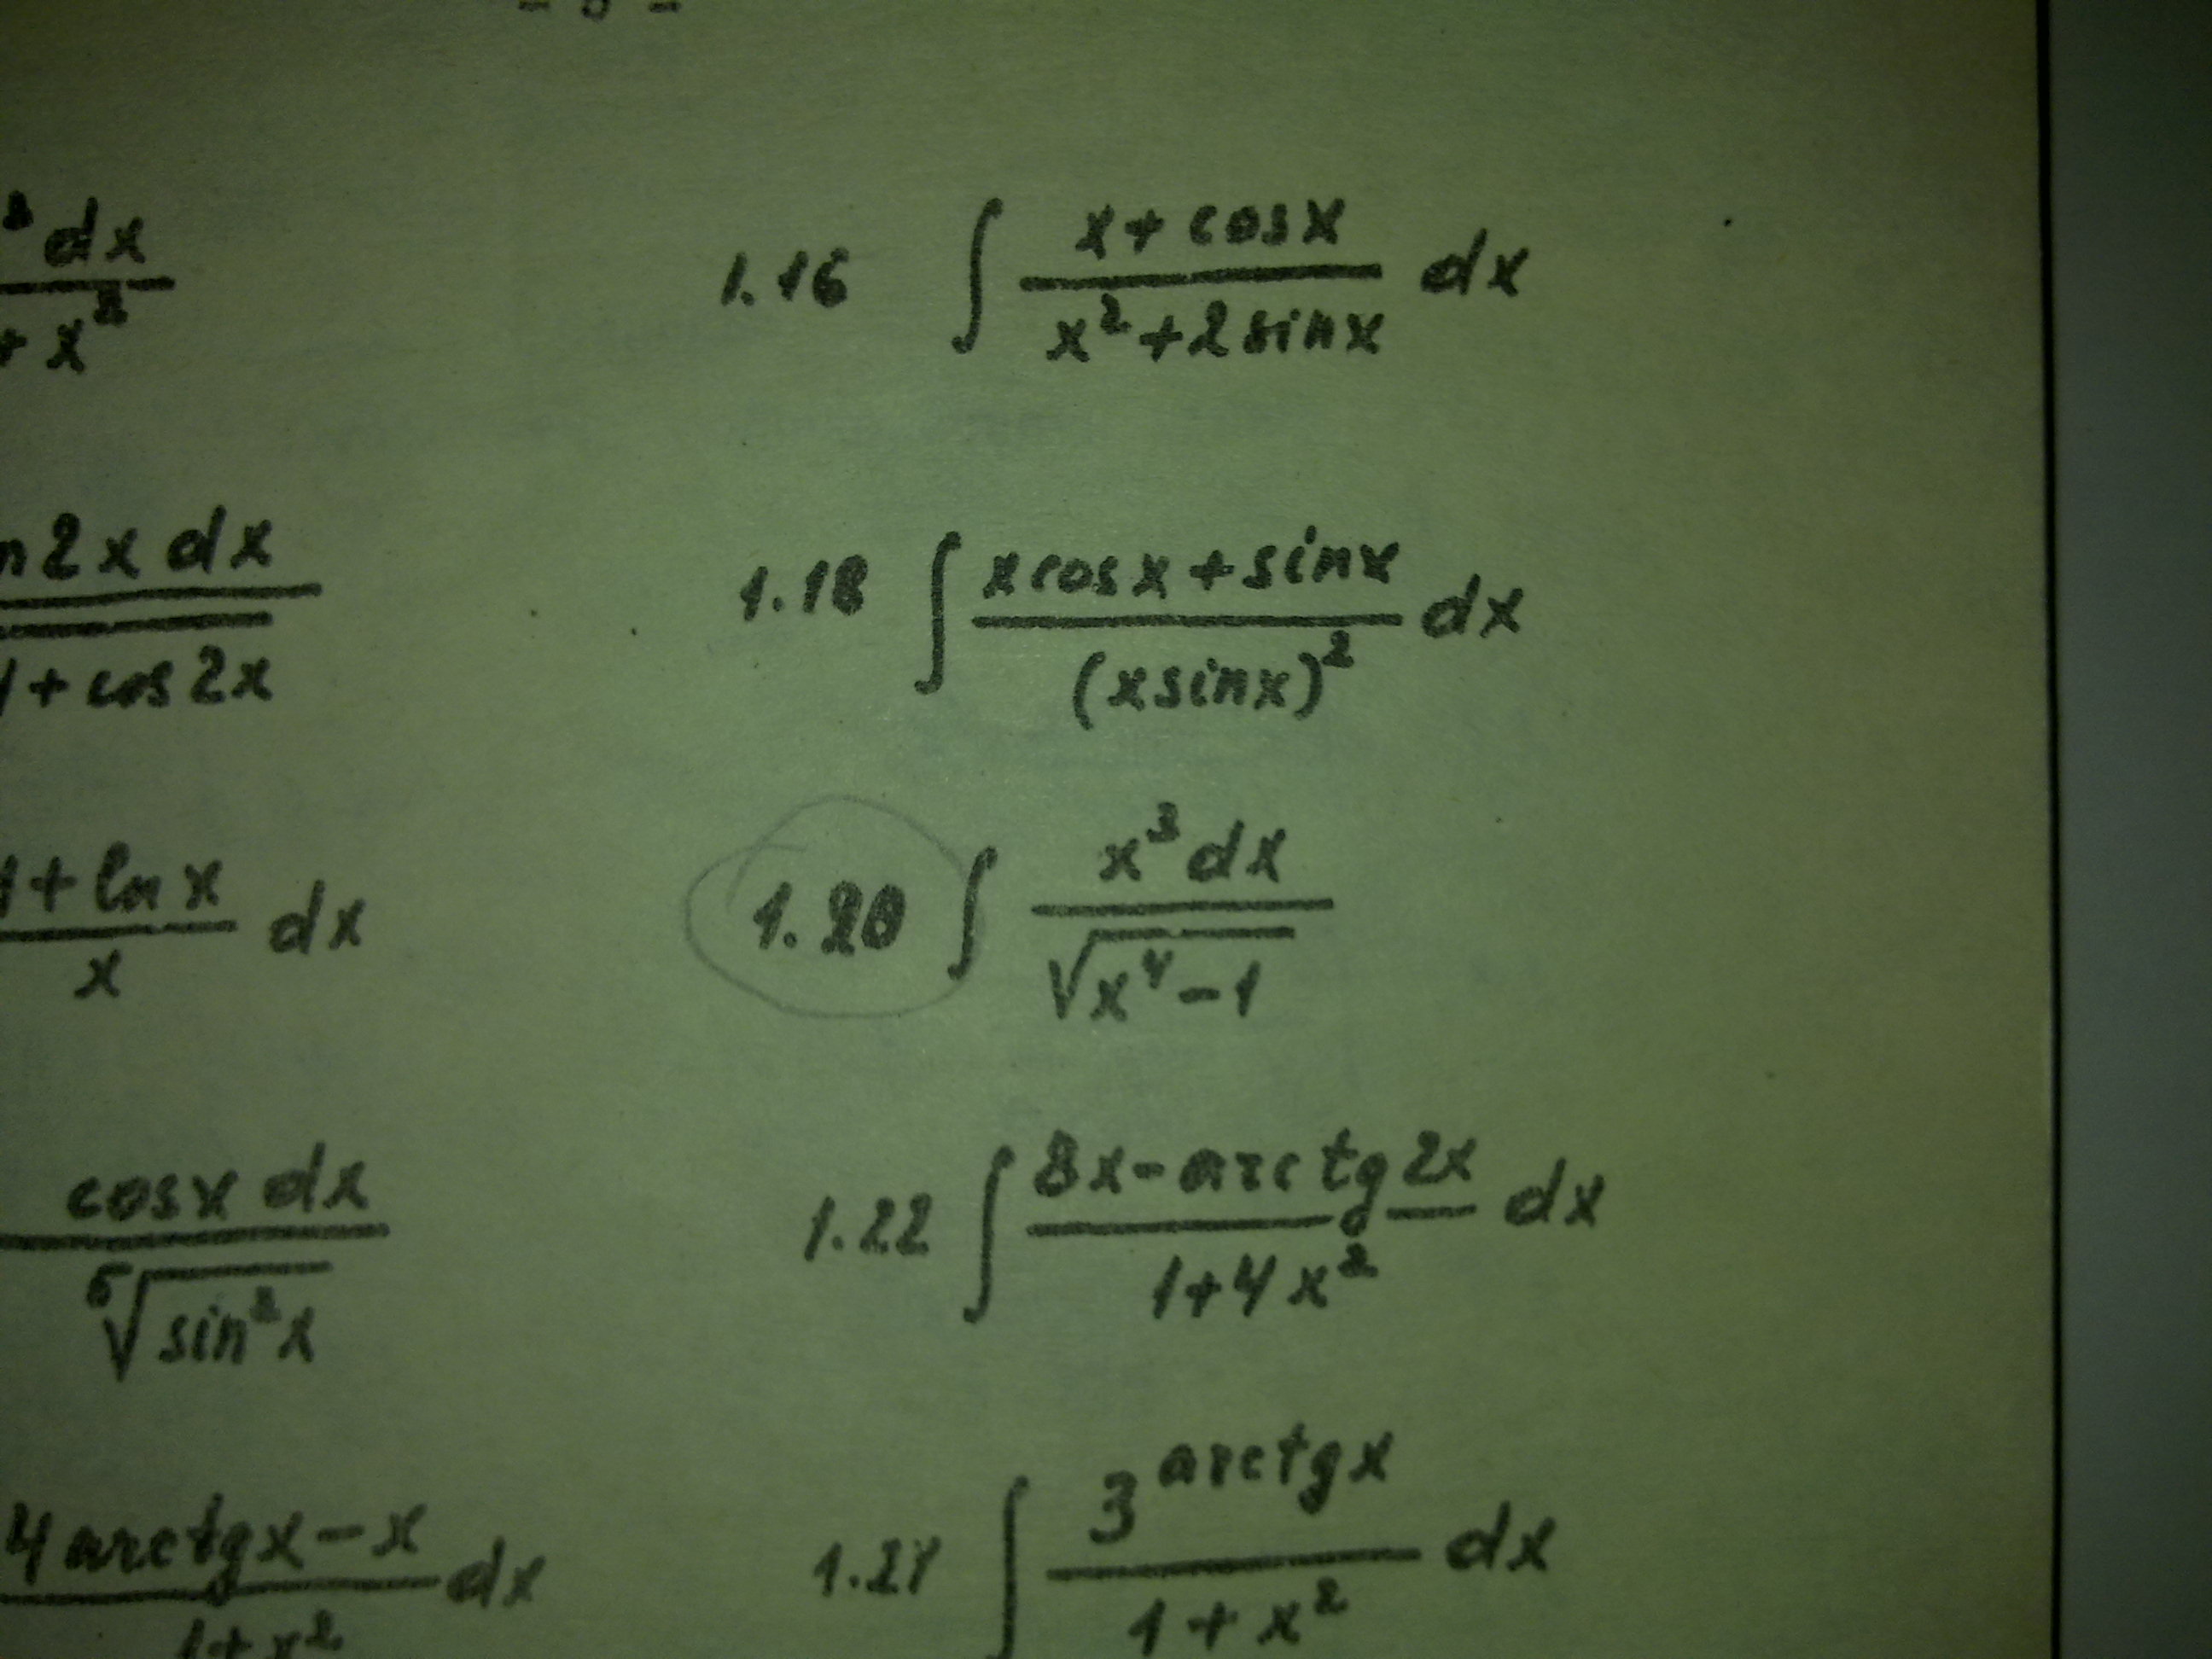 ³dx / +x²
1.16 ∫ (x+cosx)/(x²+2sinx) dx
n2x dx / 1+cos2x
1.18 ∫ (xcosx+sinx)/(xsinx)² dx
1+lnx / x dx
1.20 ∫ x³dx/√(x⁴-1)
cosx dx / ⁵√(sin²x)
1.22 ∫ (8x-arctg2x)/(1+4x²) dx
4arctgx-x / 1+x² dx
1.24 ∫ 3^arctgx/(1+x²) dx